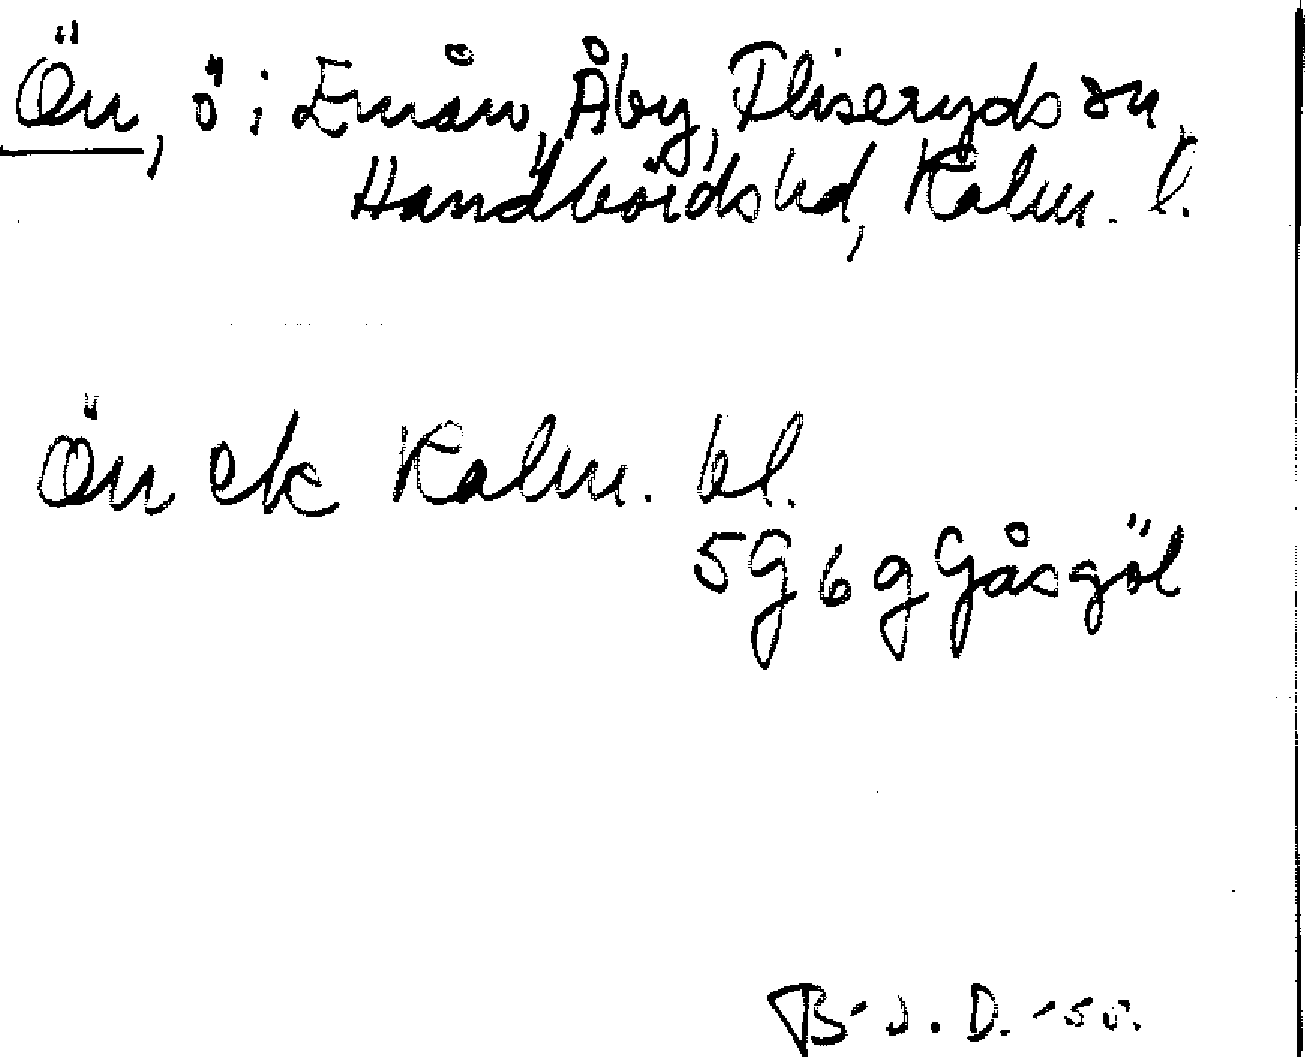 Ön, ö i Emån, Åby, Fliseryds sn,
Handbörds hd, Kalm. l.
Ön ek Kalm. bl.
5 G 6 g Gåsgöl
B-J. D. -50.